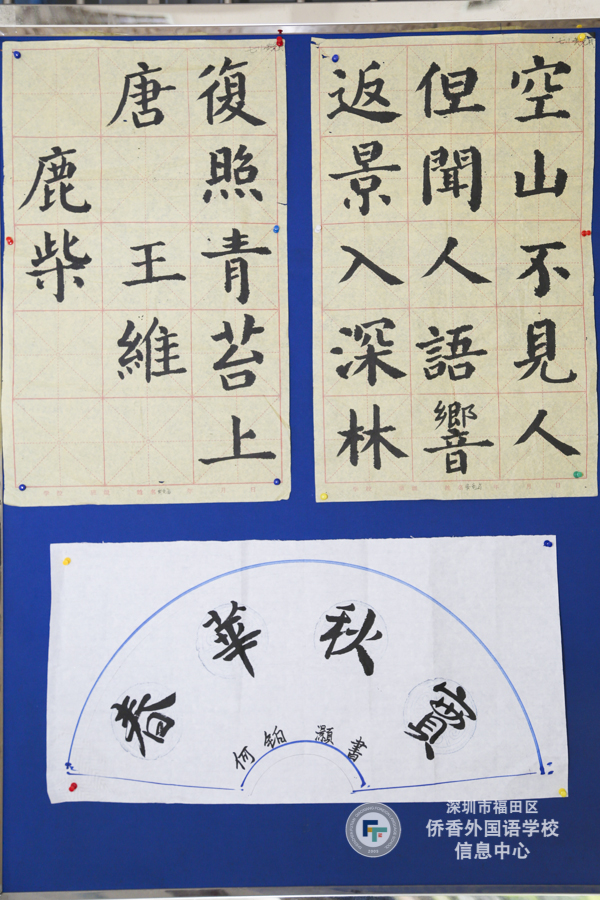 空山不見人
但聞人語響
返景入深林
復照青苔上
唐 王維
鹿柴
春華秋實
何鉑灝書
深圳市福田区
侨香外国语学校
信息中心